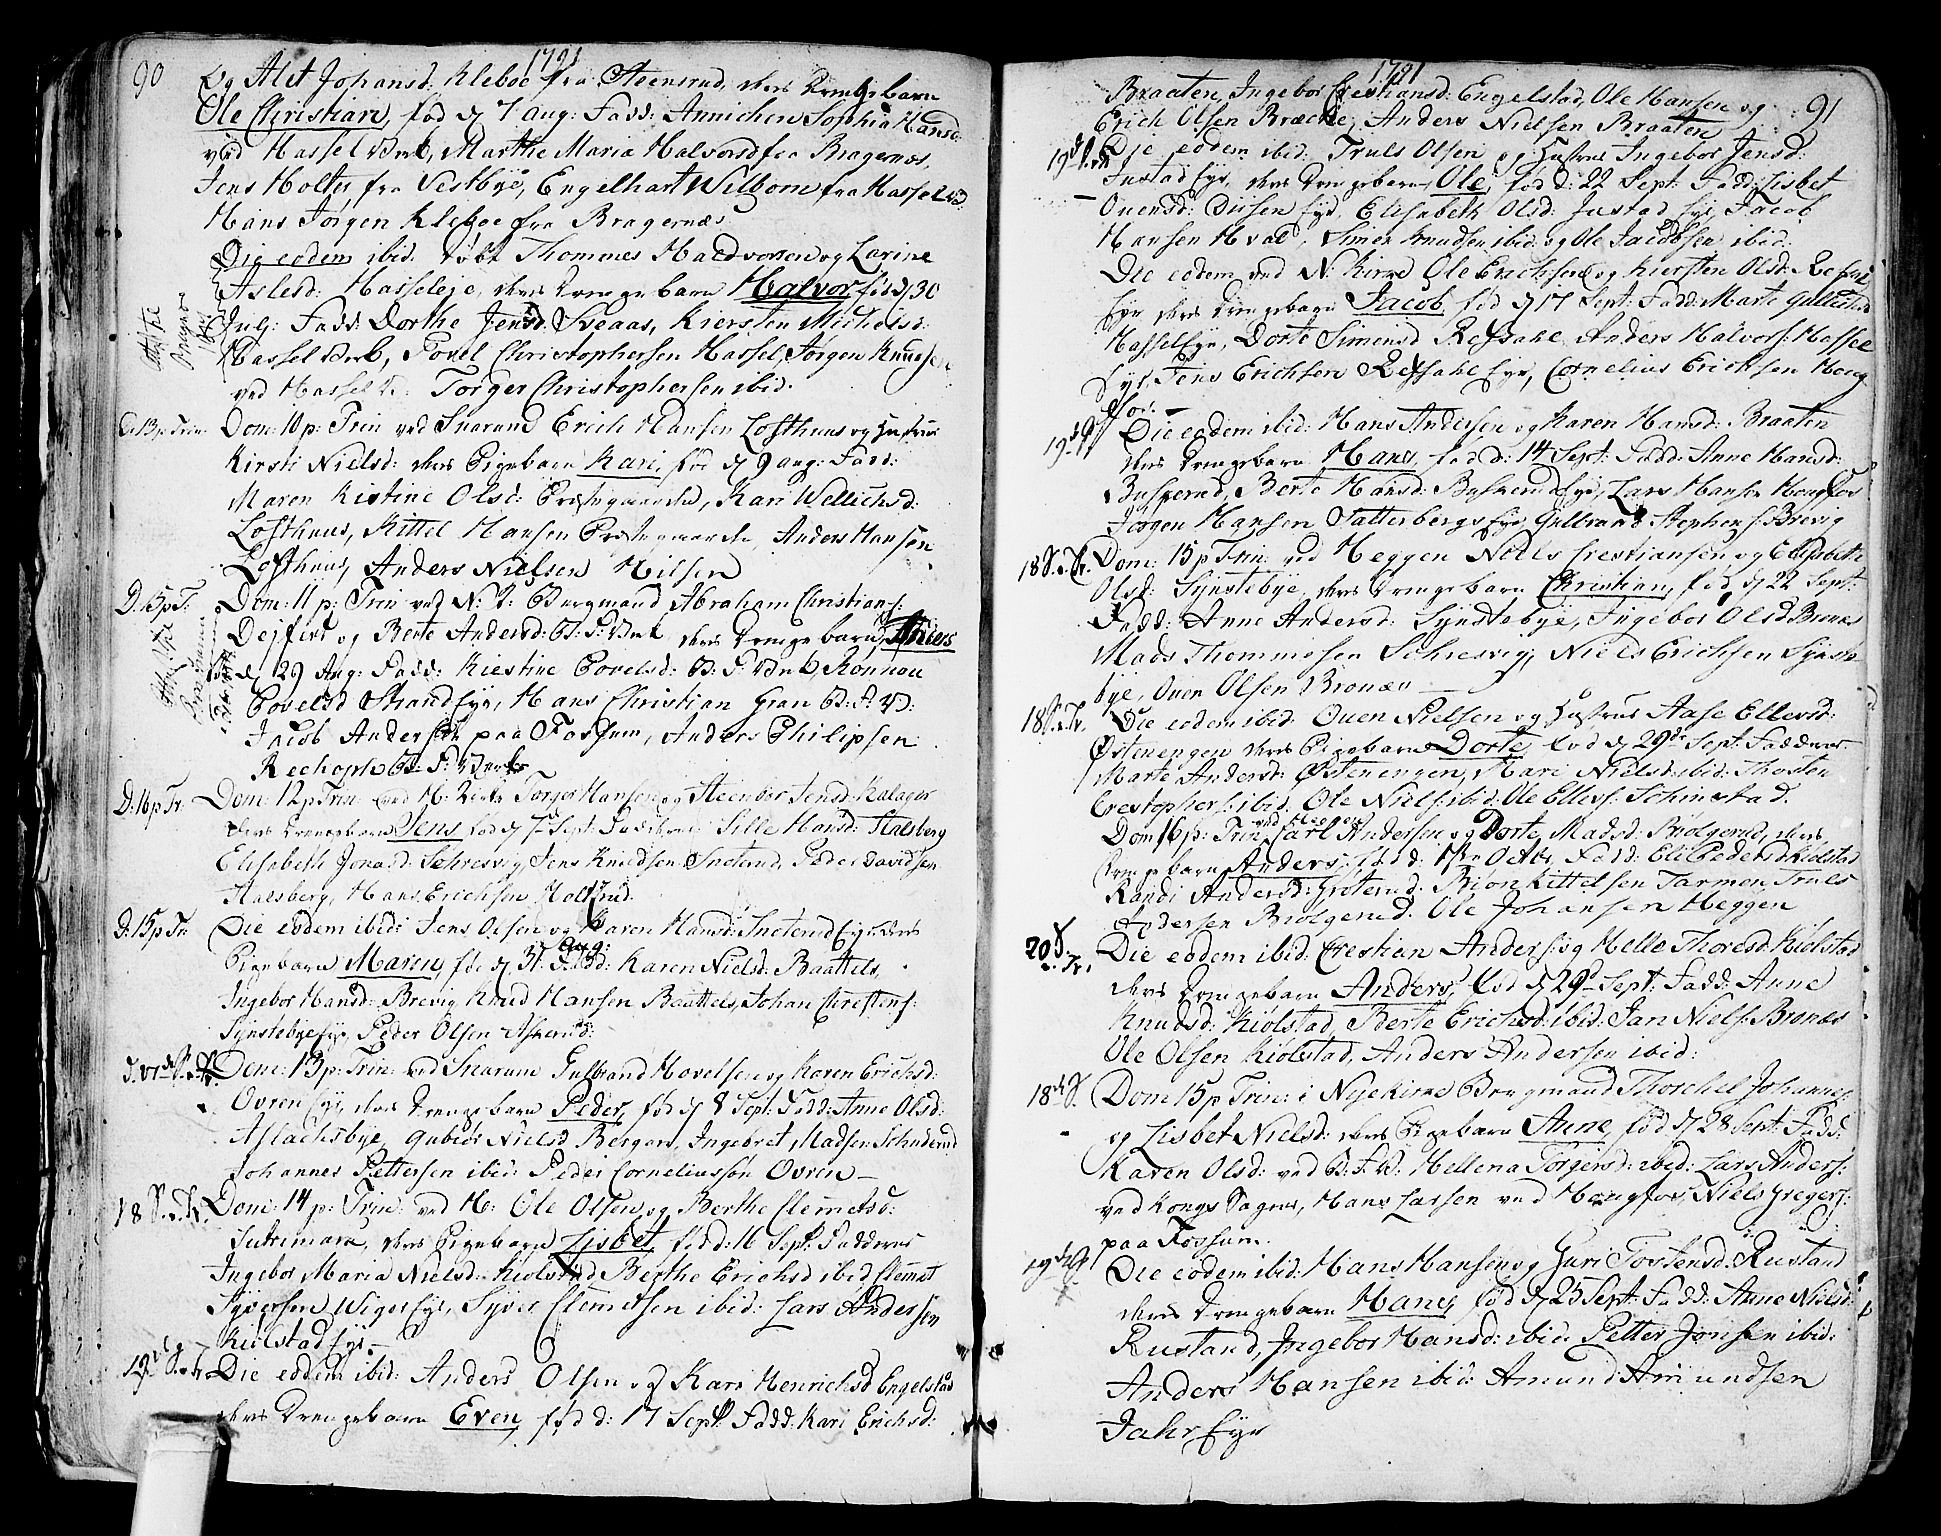 90
1791
Og Alet Johansd: Kleboe fra Steensrud, deres Drengebarn
Ole Christian, fød d 7 aug: Fadd: Annichen Sophia Hansd:
ved Hassel Verk, Marthe Maria Halvorsd fra Bragernes,
Jens Holter fra Vestbye, Engelhart Wilbom fra Hassel
Hans Jørgen Kleboe fra Bragernæs
Die eodem ibid. døbt Thommes Haldvorsen og Larine
Aslesd: Hasseleje, deres Drengebarn Halvor fød d 30
Jul: Fadd: Dorthe Jensd: Sveaas, Kiersten Michelsd:
Hassel Verk, Povel Christophersen Hassel, Jørgen Knudsen
ved Hassel V: Torger Christophersen ibid.
D: 13 p: Trin: Dom: 10 p: Trin ved Snarum Erich Hansen Lofthuus og Hustrue
Kirsti Nielsd: deres Pigebarn Kari, fød d 9 aug: Fadd:
Maren Kistine Olsd: Præstegaarden, Kari Wellichsd:
Lofthuus, Kittel Hansen Præstegaarden, Anders Hansen
Lofthuus, Anders Nielsen Hilsen
D. 15 p T: Dom: 11 p: Trin ved N: K: Bergmand Abraham Christians:
og Berte Andersd: B: F: Verk deres Drengebarn
fød d 29 Aug: Fadd: Kiestine Povelsd: B: F: Verk, Rønnou
Povelsd Strand Eye, Hans Christian Gran B: F: V:
Jacob Andersen paa Fossum, Anders Philipsen
B: F: Verk
D. 16 p Tr. Dom: 12 p Trin ved H: Kirke Torger Hansen og Steenbor Jensd: Kalager
deres Drengebarn Jens fød d 7 Sept: Fadderne Sille Hansd: Stalsberg
Elisabeth Jonasd: Sohresvig, Jens Knudsen Snoterud, Peder Davidsen
Stalsberg, Hans Erichsen
D. 15 p Tr. Die eodem ibid: Jens Olsen og Karen Hansd: Snoterud Eye deres
Aug:
Pigebarn Maren, fød d 31. Fadd: Karen Nielsd: Baattels,
Ingebor Hansd: Brevig Knud Hansen Baattels, Johan Chrestens:
Synstebye Eye, Peder Olsen Askerud:
Dom: 13 p: Trin: ved Snarum Gulbrand Hovelsen og Karen Erichsd:
Ovren Eye, deres Drengebarn Peder, fød d 8 Sept: Fadd: Anne Olsd:
Aslachsbye, Gubiør Nielsd Bergan, Ingebret Madsen
Johannes Pettersen ibid: Peder Corneliussen Ovren
18 S. Tr. Dom: 14 p: Trin: ved H: Ole Olsen og Berthe Clemetsd:
deres Pigebarn Lisbet fød d: 16 Sept: Fadderne
Ingebor Maria Nielsd: Kiolstad Berthe Erichsd ibid Clemet
Syversen Wiger Eye, Syver Clemetsen ibid: Lars Andersen
Kiolstad Eye.
19 S. Tr. Die eodem ibid: Anders Olsen og Kari Henrichsd Engelstad
deres Drengebarn Even, fød d: 17 Sept. Fadd: Kari Erichsd:
1791
91
Braaten, Ingebor Crestiansd: Engelstad, Ole Hansen og
Erich Olsen Bræcke, Anders Nielsen Braaten
Die eodem ibid: Truls Olsen og Hustrue Ingebor Jensd:
Justad Eye, deres Drengebarn Ole, fød d: 22 Sept: Fadd: Lisbet
Ouensd: Eye, Elisabeth Olsd: Justad Eye, Jacob
Hansen Hval, Simen Knudsen ibid: og Ole Jacobsen ibid:
Die eodem ved N: Kirke Ole Erichsen og Kiersten Olsd:
Eye deres Drengebarn Jacob, fød d 17 Sept: Fadd: Marte
Hassel Eye, Dorte Simensd Anders Halvors: Hassel
Eye, Jens Erichsen Eye, Cornelius Erichsen Houg
foss.
Die eodem ibid: Hans Andersen og Karen Hansd: Braaten
deres Drengebarn Hans, fød d: 14 Sept: Fadd: Anne Hansd:
Buskerud, Berte Hansd: Buskerud Eye, Lars Hansen Hougfos
Jørgen Hansen Satterbergs Eye, Gulbrand Stephens: Brevig
18 S. Tr. Dom: 15 p Trin: ved Heggen Niels Crestiansen og Elisabeth
Olsd: Synstebye, deres Drengebarn Christian, fød, d 22 Sept:
Fadd: Anne Andersd: Syndtebye, Ingebor Olsd Bronæs
Mads Thommesen Sohresvig, Niels Erichsen Synste-
bye, Ouen Olsen Bronæs
18 S. Tr. Die eodem ibid: Ouen Nielsen og Hustrue Aase Ellevsd:
Østenengen deres Pigebarn Dorte, fød d 29de Sept: Fadderne
Marte Andersd: Østenengen, Mari Nielsd: ibid: Thosten
Crestophers: ibid. Ole Niels: ibid: Ole Ellevs: Schinstad.
ved Heggen
Dom 16 p: Trin Carl Andersen og Dorte Madsd: Biølgerud, deres
Drengebarn Anders, fød d: Octbr, Fadd: Eli Pedersd Kiølstad
Randi Andersd: Groterud. Biøn Kittelsen Tarmon, Truls
Andersen Biølgerud. Ole Johansen Heggen
20 S. Tr. Die eodem ibid: Crestian Anders: og Helle Thoresd: Kiølstad
deres Drengebarn Anders, fød d 29d Sept: Fadd: Anne
Knudsd: Kiølstad, Berte Erichsd: ibid: Jan Niels: Bronæs
Ole Olsen Kiølstad, Anders Andersen ibid:
18de S. Dom 15 p Trin: i Nyekirke Bergmand Thorchel Johannes:
og Lisbet Nielsd: deres Pigebarn Anne, fød d 28 Sept: Fadd:
Karen Olsd: ved B: F: V: Hellena Torgersd: ibid: Lars Anders:
ved Kongs Sagene, Hans Larsen ved Hougfos, Niels Gregers:
paa Fossum.
Die eodem ibid: Hans Hansen og Guri Tostensd: Rustand
deres Drengebarn Hans, fød d 25 Sept: Fadd: Anne Nielsd:
Rustand, Ingebor Hansd: ibid: Petter Jonsen ibid:
Anders Hansen ibid: Amund Amundsen
Jahr Eye